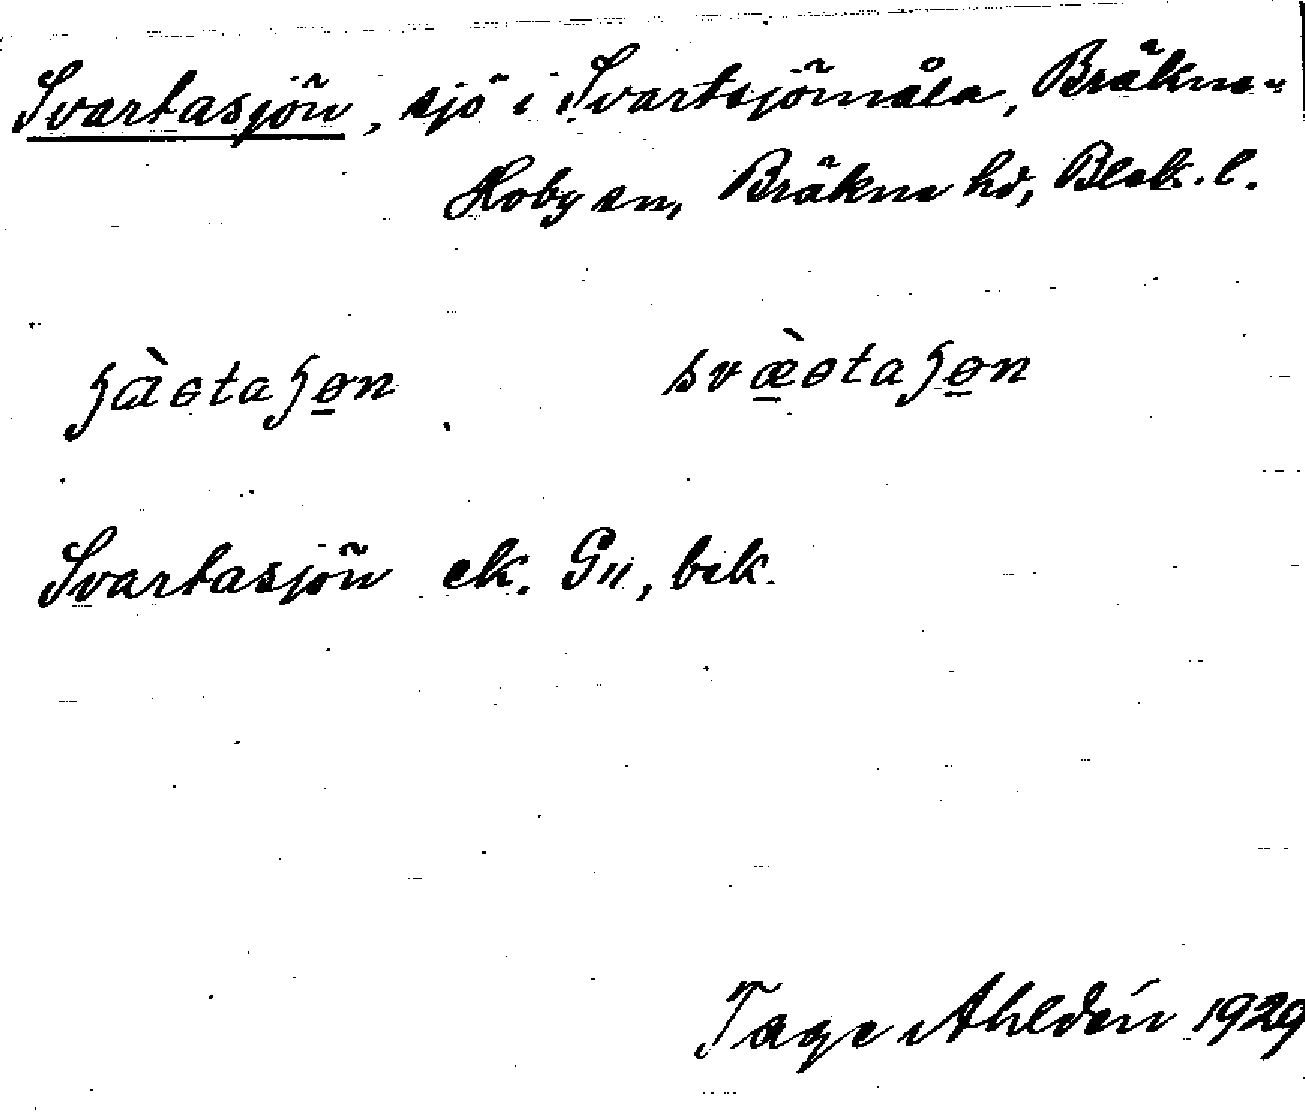 Svartasjön, sjö i Svartsjömåla, Bräkne-
Hoby sn, Bräkne hd, Blek. l.
Svartasjön ek. G11, bek.
Tage Ahldén 1929